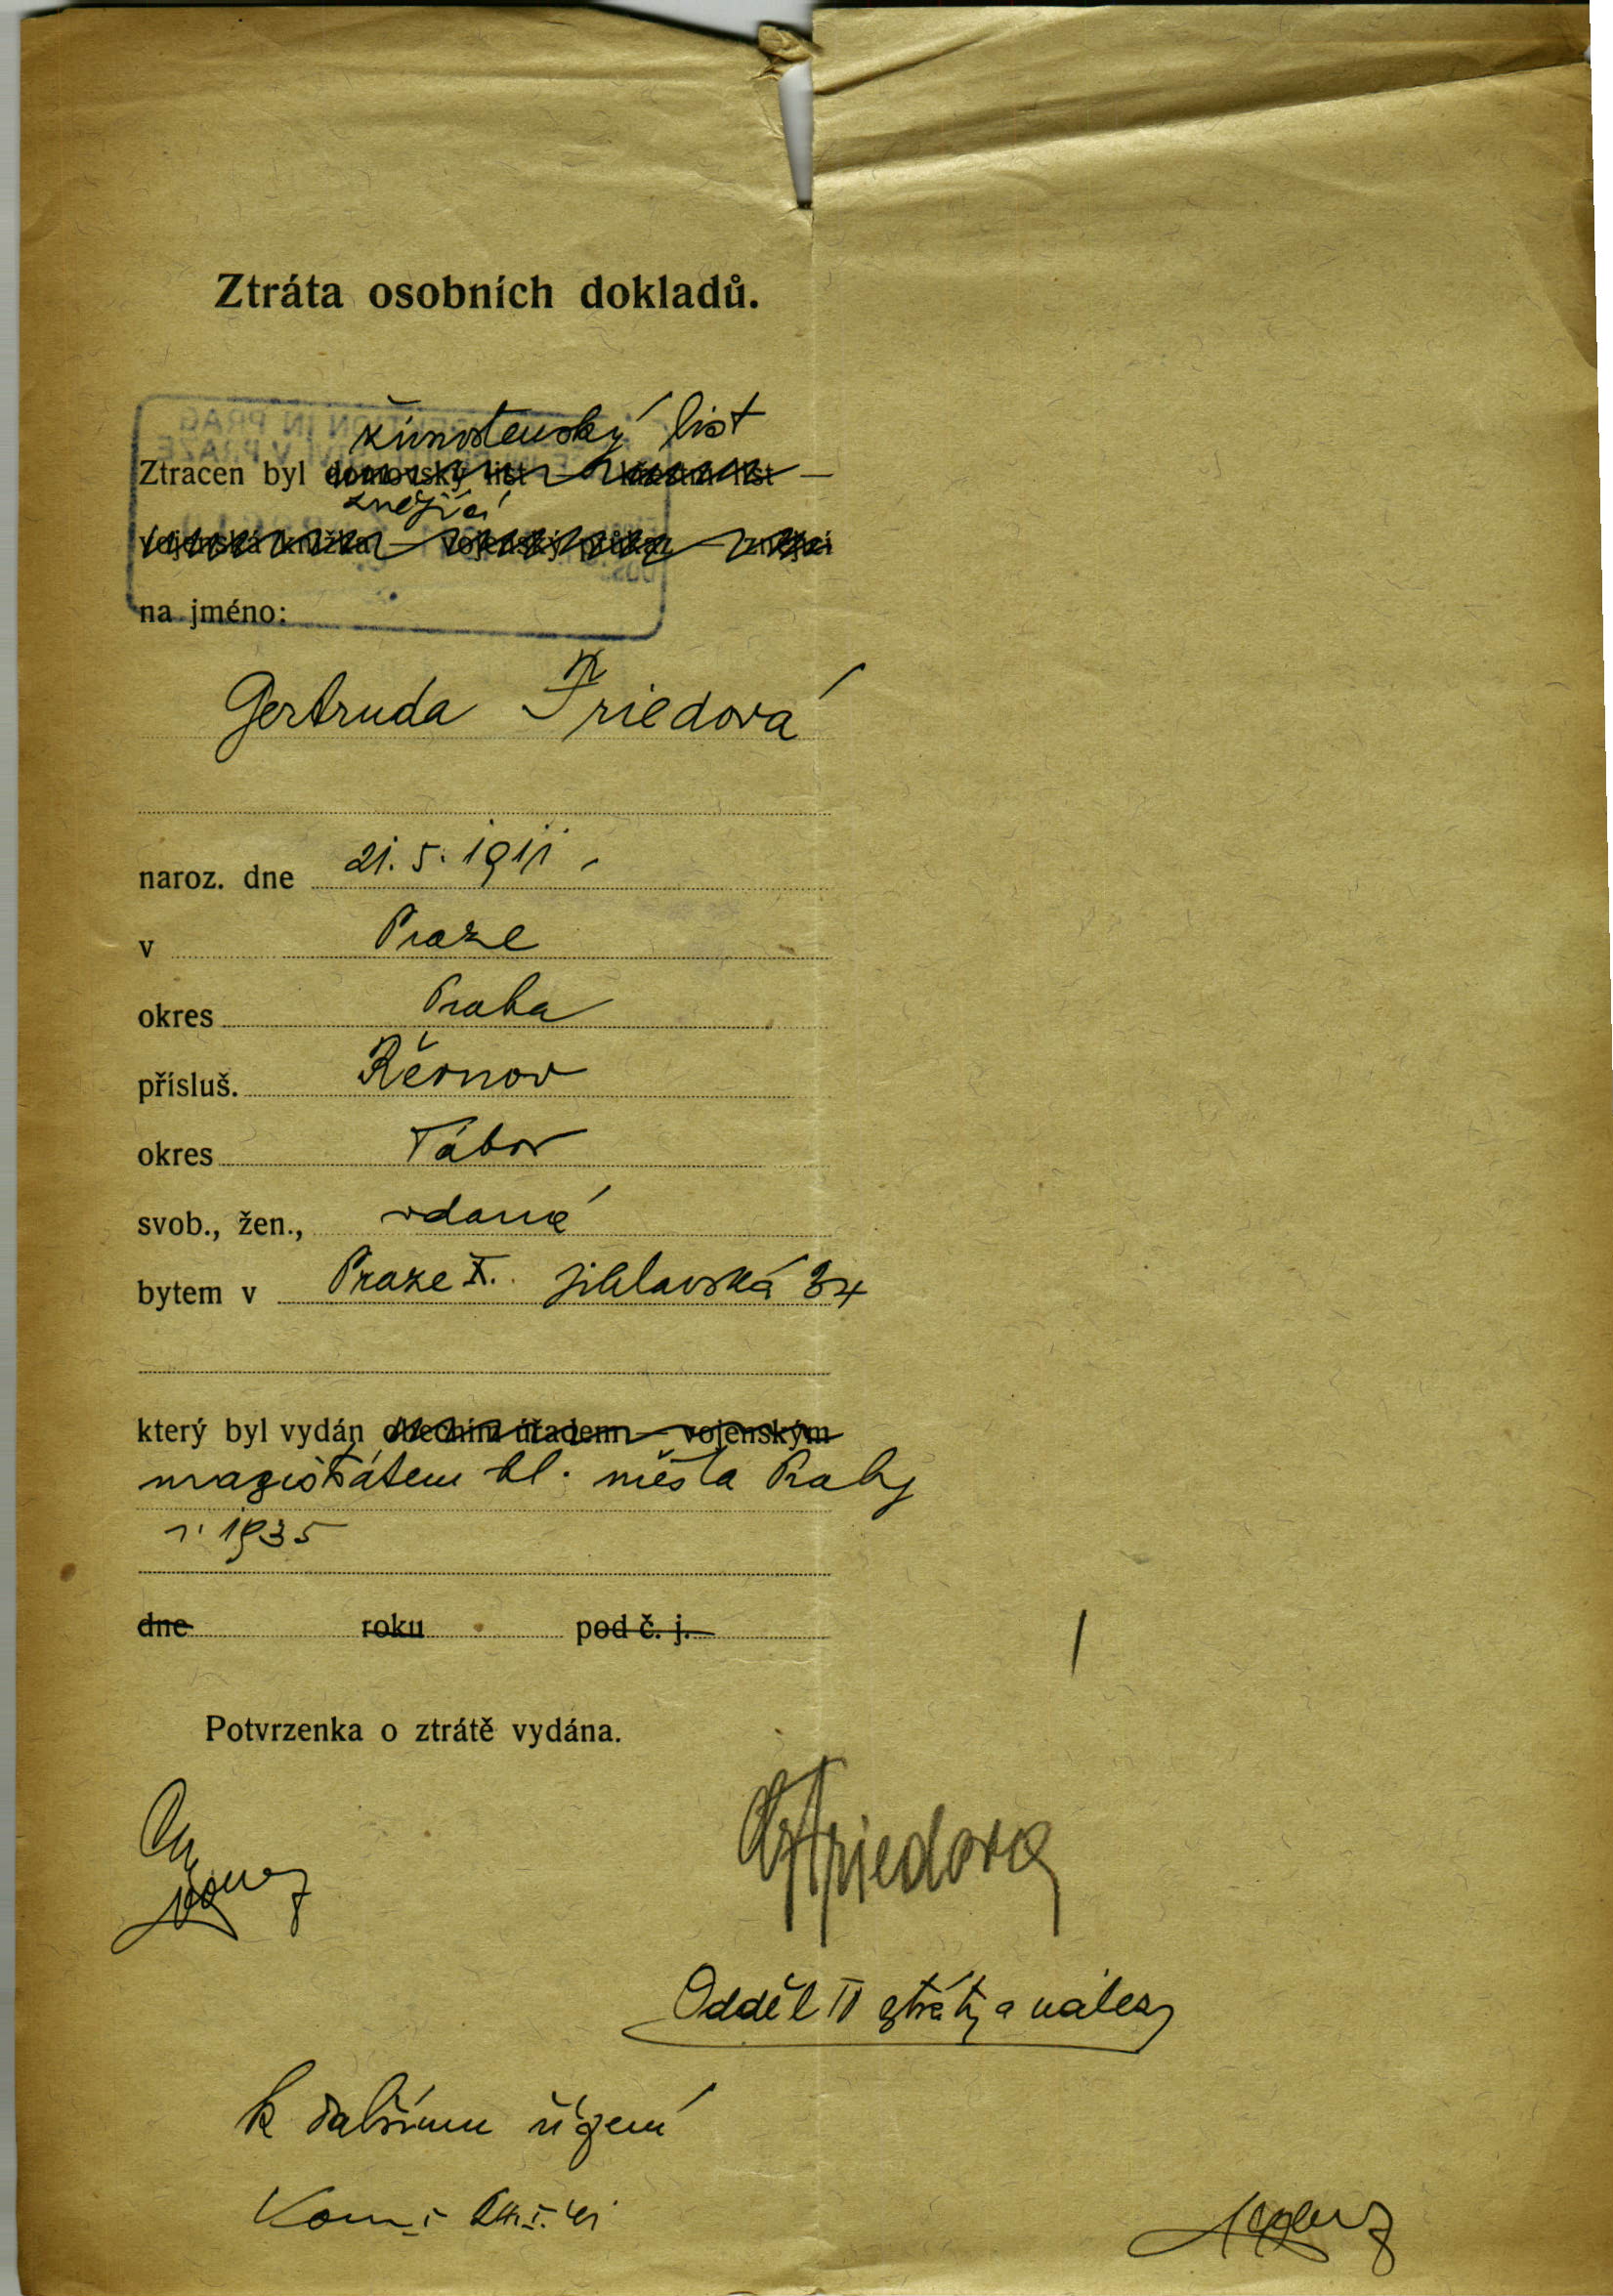 Ztráta osobních dokladů.
živnostenský list
Ztracen byl domovský list — křestní list —
znějící
vojenská knížka — vojenský průkaz — znějící
na jméno:
Gertruda Friedová
naroz. dne 21. 5. 1911
v Praze
okres Praha
přísluš.
okres Tábor
svob., žen., vdaná
bytem v Praze X. Jihlavská 34
který byl vydán obecním úřadem — vojenským
magistrátem hl. města Prahy
r. 1935
dne roku pod č. j.
Potvrzenka o ztrátě vydána.
Friedova
Odděl II ztráty a nálezy
k dalšímu řízení